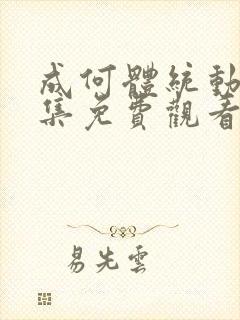 成何體統動
集免費觀看
易先雲